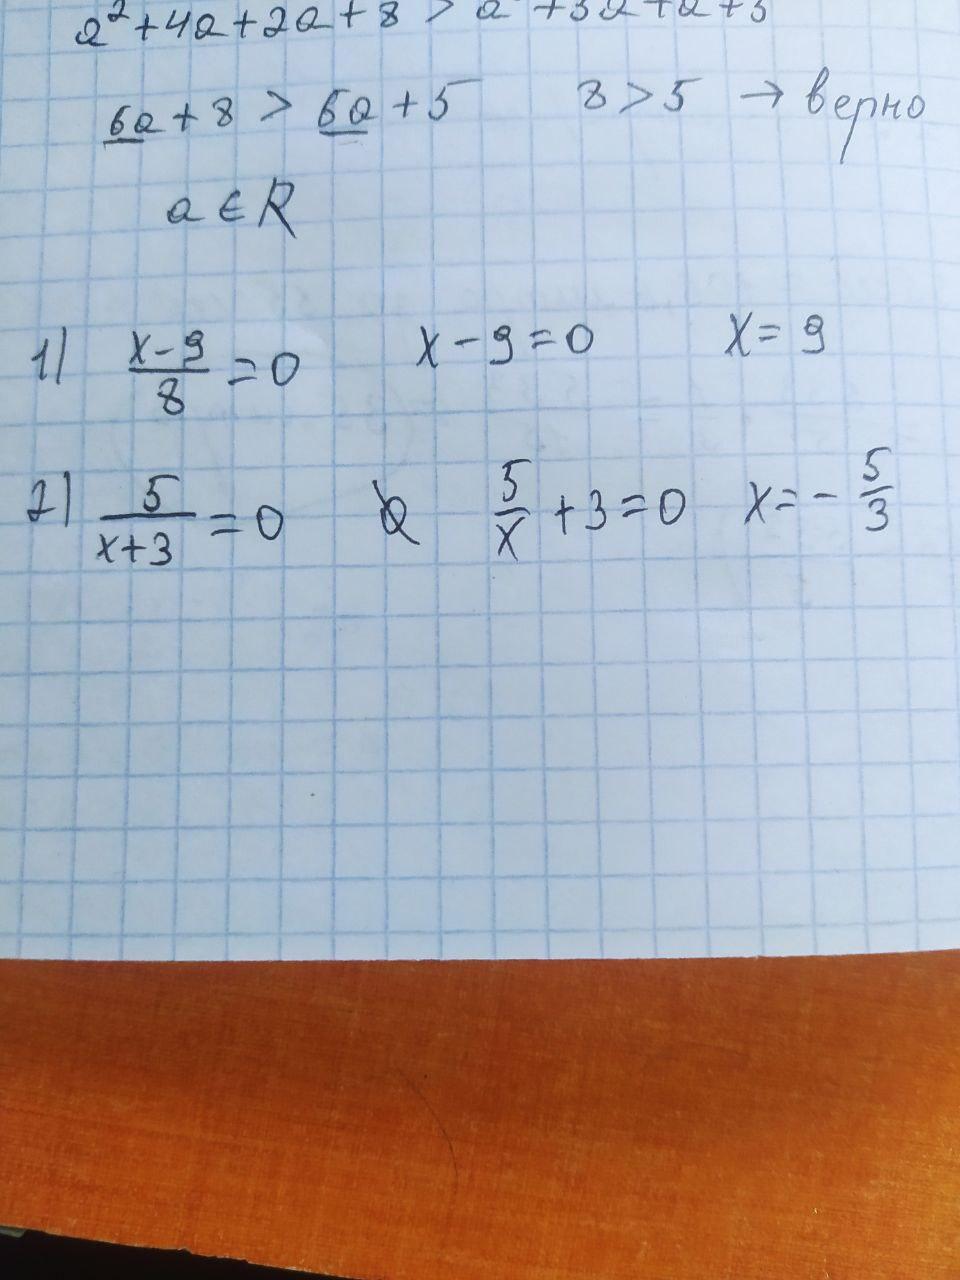 a² + 4a + 2a + 8 > a² + 5a + a + 5
6a + 8 > 6a + 5 8 > 5 → верно
a ∈ R
1) (x-9)/8 = 0 x - 9 = 0 x = 9
2) 5/(x+3) = 0 5/x + 3 = 0 x = - 5/3